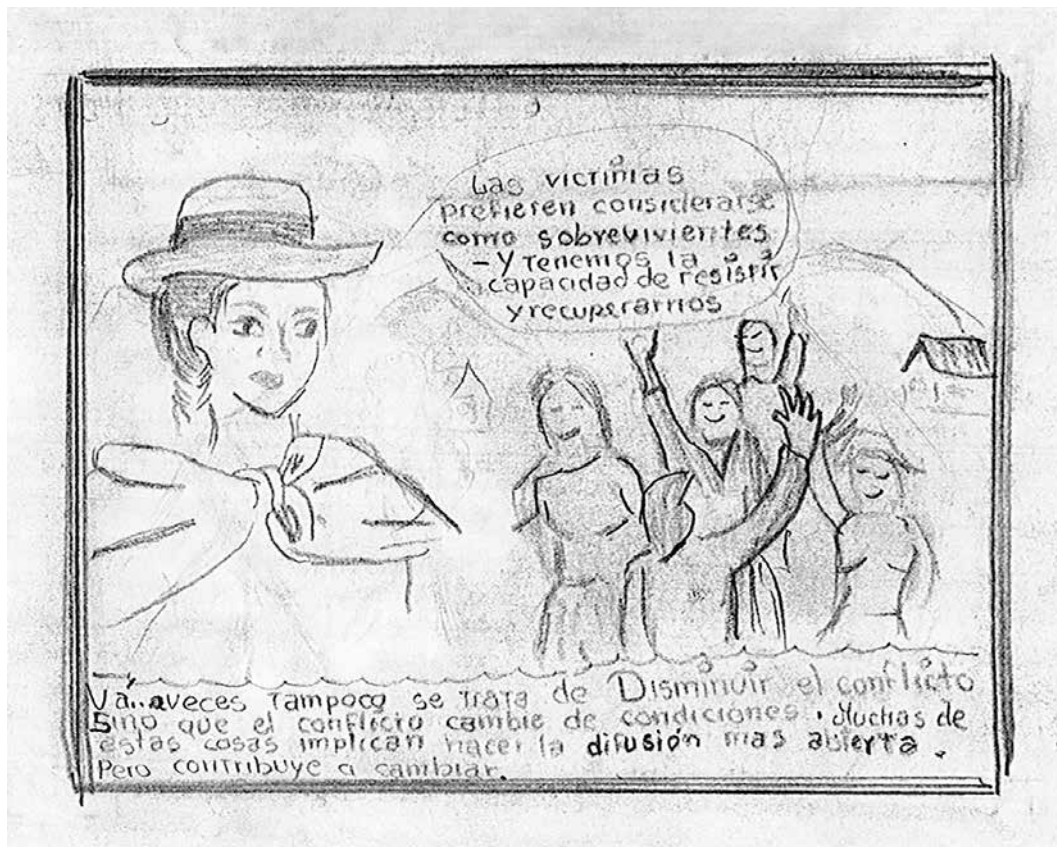 Las victimias
prefieren considerarse
como sobrevivientes
- Y tenemos la
capacidad de resistir
y recuperarnos
Vá.. aveces Tampoco se trata de Disminuir el conflicto
Sino que el conflicto cambie de condiciones. Muchas de
estas cosas implican hacer la difusión mas abierta.
Pero contribuye a cambiar.